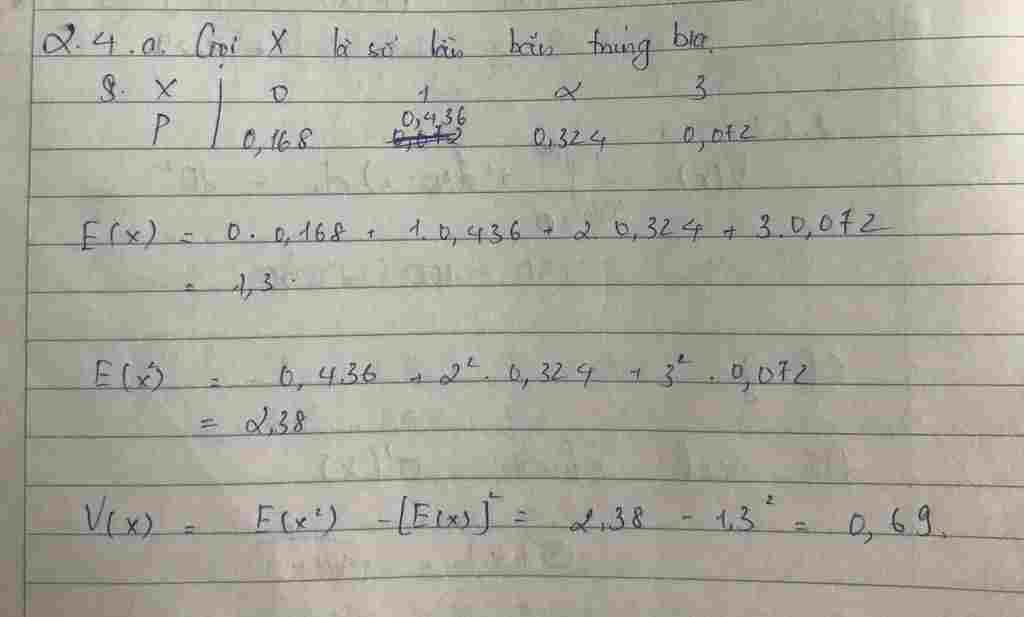 2.4.a. Gọi X là số lần bắn trúng bia.
X | 0 1 2 3
P | 0,168 0,436 0,324 0,072
E(x) = 0. 0,168 + 1.0,436 + 2 0,324 + 3.0,072
= 1,3.
E(x²) = 0,436 + 2². 0,324 + 3². 0,072
= 2,38
V(x) = E(x²) - [E(x)]² = 2,38 - 1,3² = 0,69.